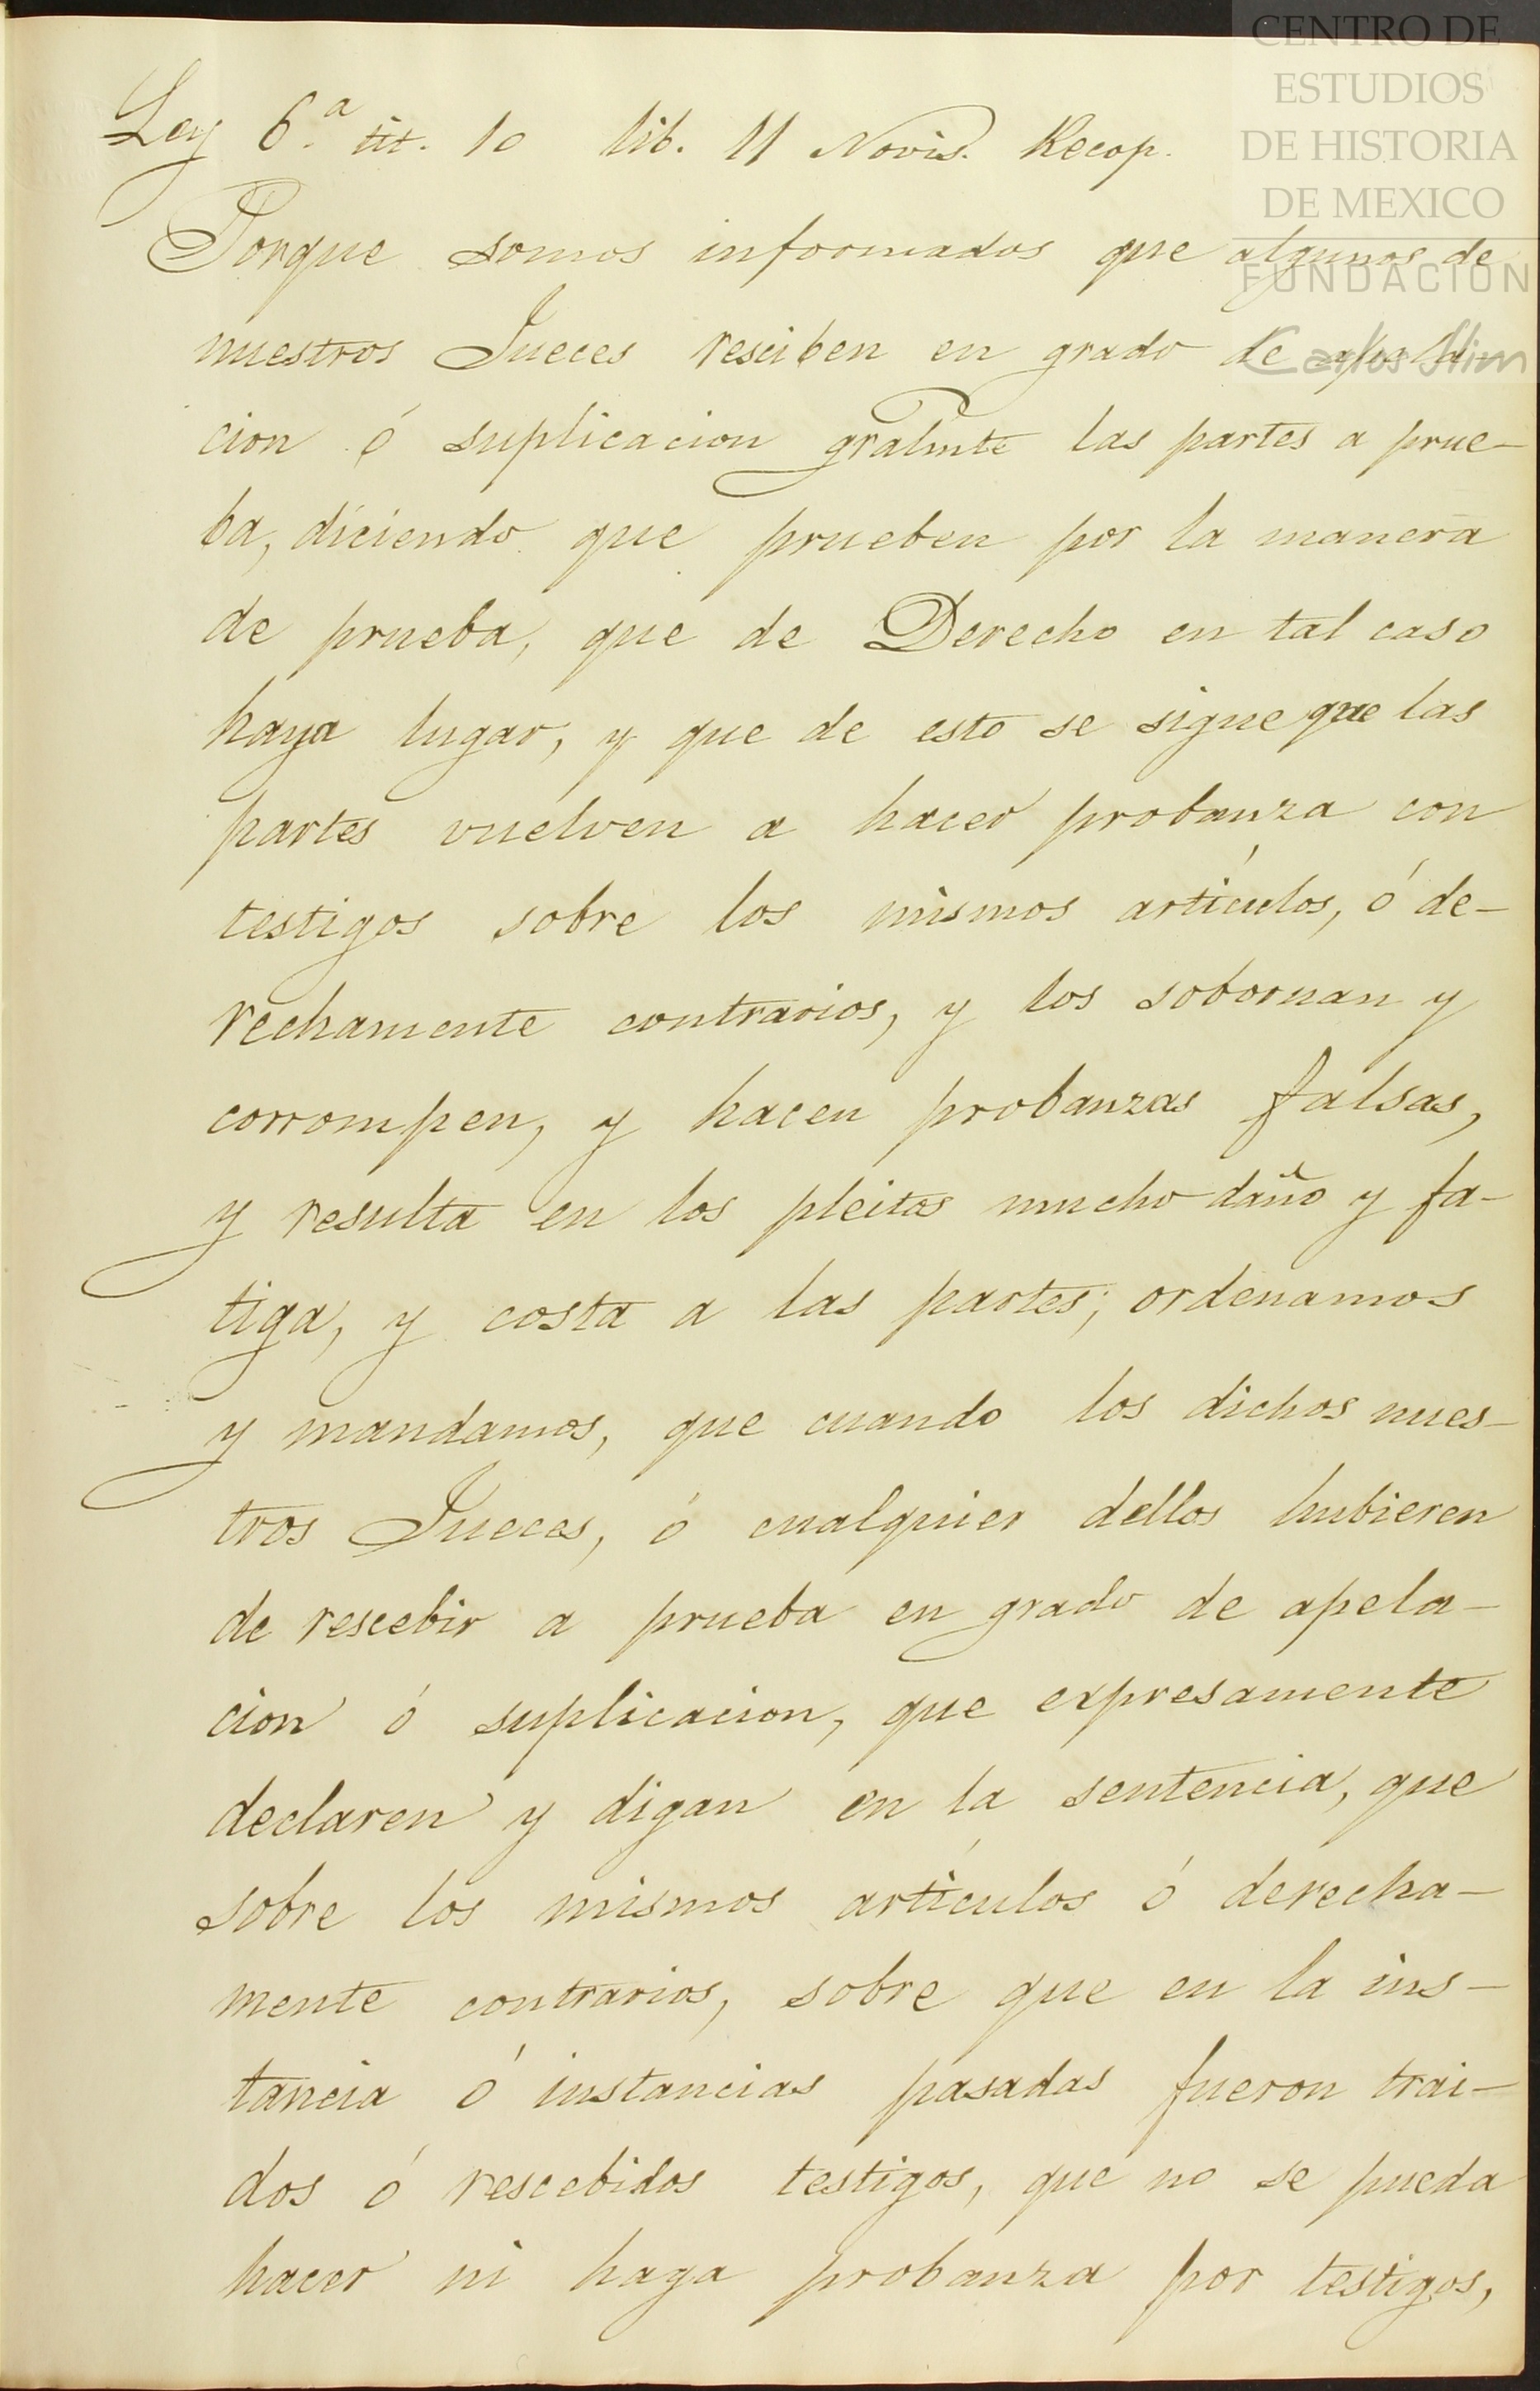 CENTRO DE
ESTUDIOS
DE HISTORIA
DE MEXICO
FUNDACIÓN
Carlos Slim
Ley 6.ª tit. 10 lib. 11 Novis. Recop.
Porque somos informados que algunos de
nuestros Jueces resciben en grado de apela-
cion ó suplicacion gralmte las partes a prue-
ba, diciendo que prueben por la manera
de prueba, que de Derecho en tal caso
haya lugar, y que de esto se sigue que las
partes vuelven a hacer probanza con
testigos sobre los mismos artículos, ó de-
rechamente contrarios, y los sobornan y
corrompen, y hacen probanzas falsas,
y resulta en los pleitos mucho daño y fa-
tiga, y costa a las partes; ordenamos
y mandamos, que cuando los dichos nues-
tros Jueces, ó cualquier dellos hubieren
de rescebir a prueba en grado de apela-
cion ó suplicacion, que expresamente
declaren y digan en la sentencia, que
sobre los mismos artículos ó derecha-
mente contrarios, sobre que en la ins-
tancia ó instancias pasadas fueron trai-
dos ó rescebidos testigos, que no se pueda
hacer ni haga probanza por testigos,